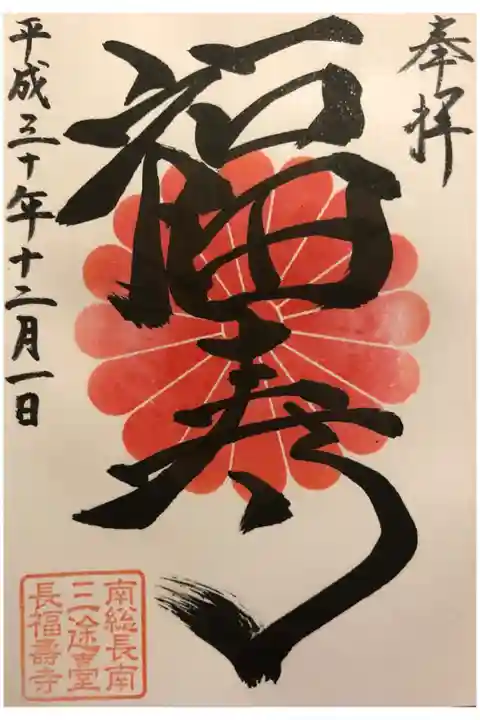 奉拝
福寿
平成三十年十二月一日
南総長南
三途臺
長福壽寺